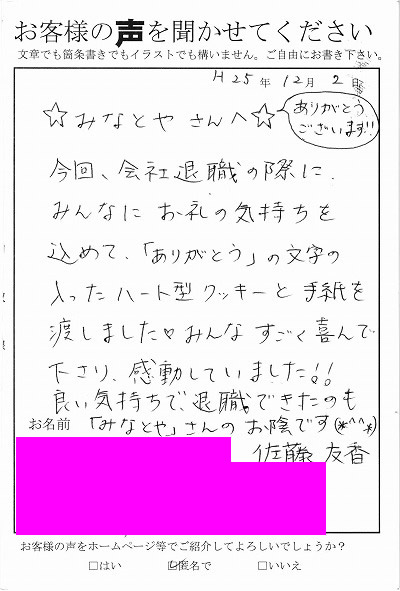 お客様の声を聞かせてください
文章でも箇条書きでもイラストでも構いません。ご自由にお書き下さい。
H25年12月2日
☆みなとやさんへ☆
ありがとう
ございます!!
今回、会社退職の際に、
みんなにお礼の気持ちを
込めて、「ありがとう」の文字の
入ったハート型クッキーと手紙を
渡しました♡みんなすごく喜んで
下さり、感動していました!!
良い気持ちで、退職できたのも
お名前 「みなとや」さんのお陰です(*^^*)
佐藤 友香
お客様の声をホームページ等でご紹介してよろしいでしょうか?
□はい □匿名で □いいえ